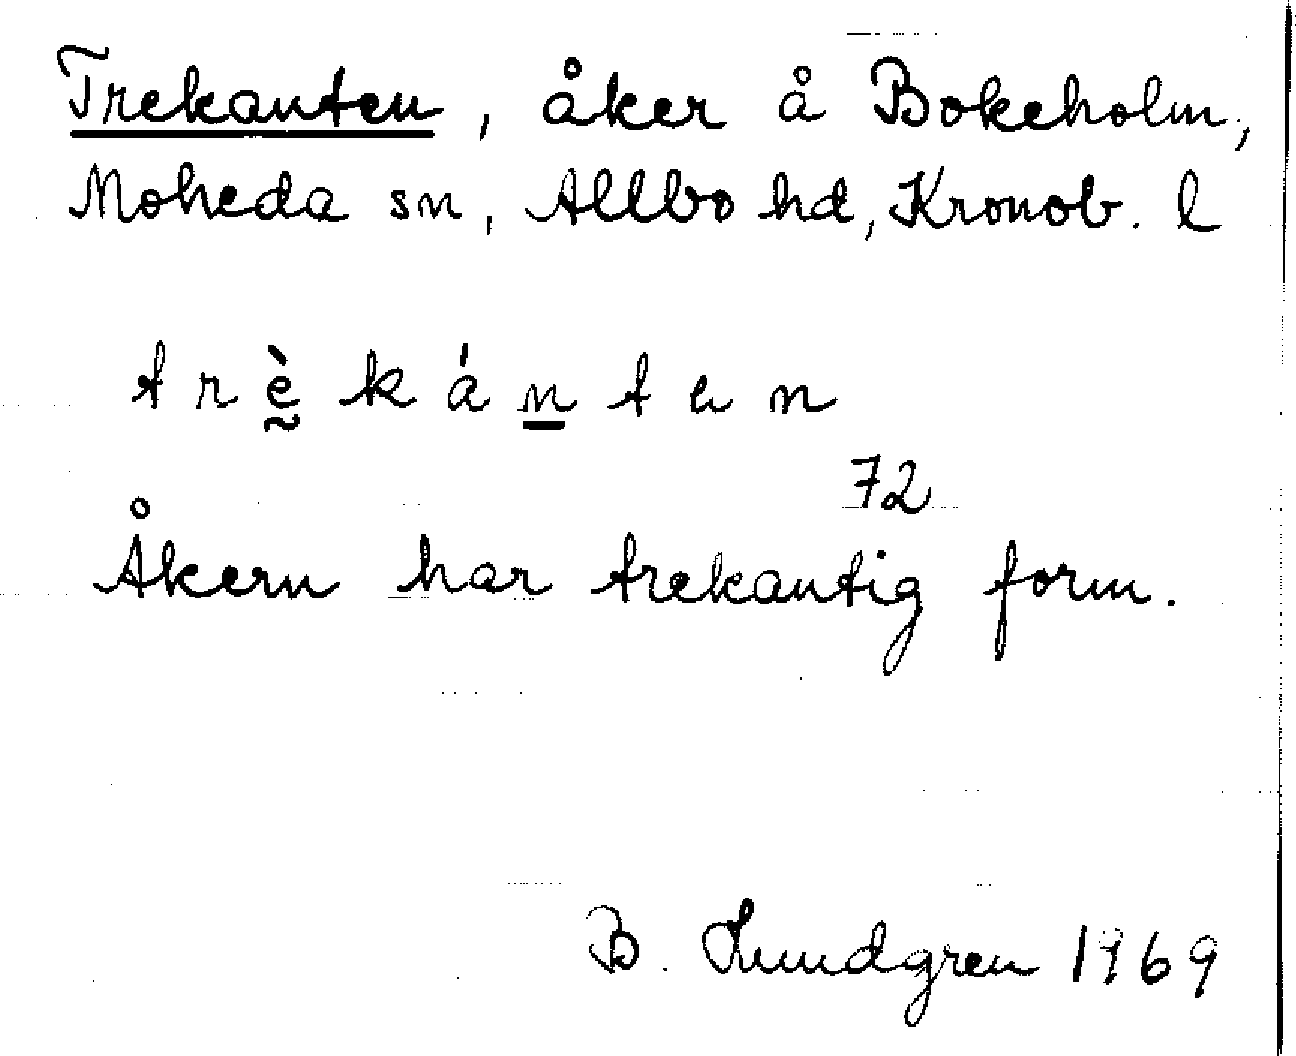 Trekanten, åker å Bokeholm,
Moheda sn, Allbo hd, Kronob. l
t r ḛ̀ k á n̲ t e n
72
Åkern har trekantig form.
B. Lundgren 1969